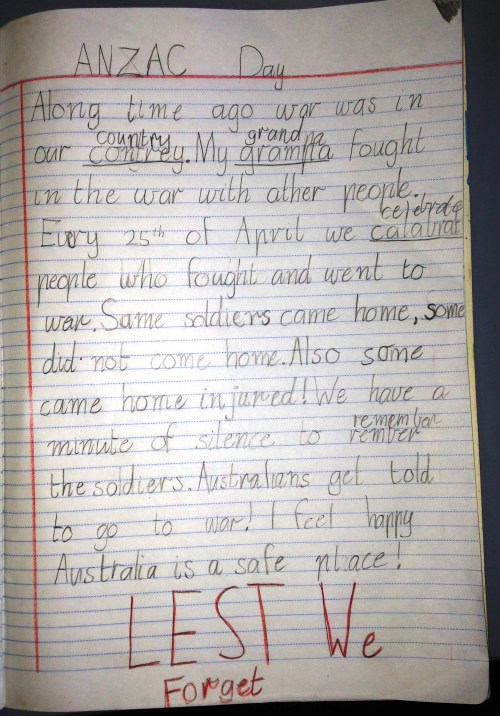 ANZAC Day
Along time ago war was in
country grandpa
our contrey. My grampa fought
in the war with other people.
celebrate
Every 25th of April we calabrat
people who fought and went to
war. Some soldiers came home, some
did not come home. Also some
came home injured! We have a
remember
minute of silence to rember
the soldiers. Australians get told
to go to war! I feel happy
Australia is a safe place!
LEST We
Forget